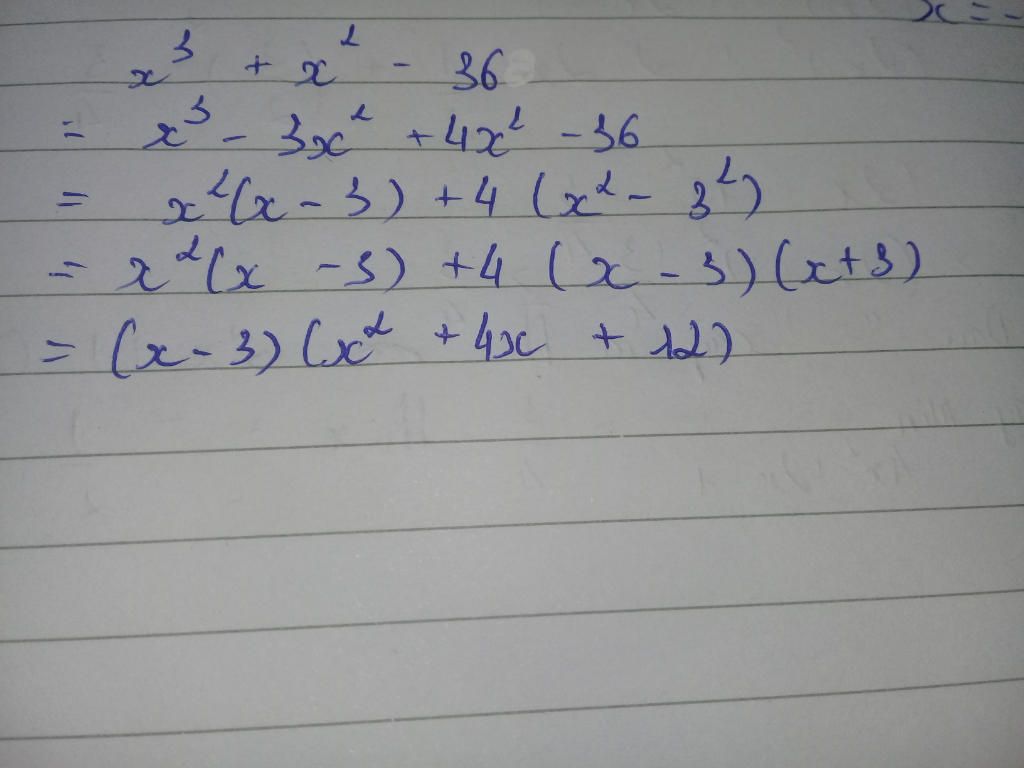 x = -
x³ + x² - 36
= x³ - 3x² + 4x² - 36
= x²(x - 3) + 4 (x² - 3²)
= x²(x - 3) + 4 (x - 3)(x+3)
= (x - 3)(x² + 4x + 12)